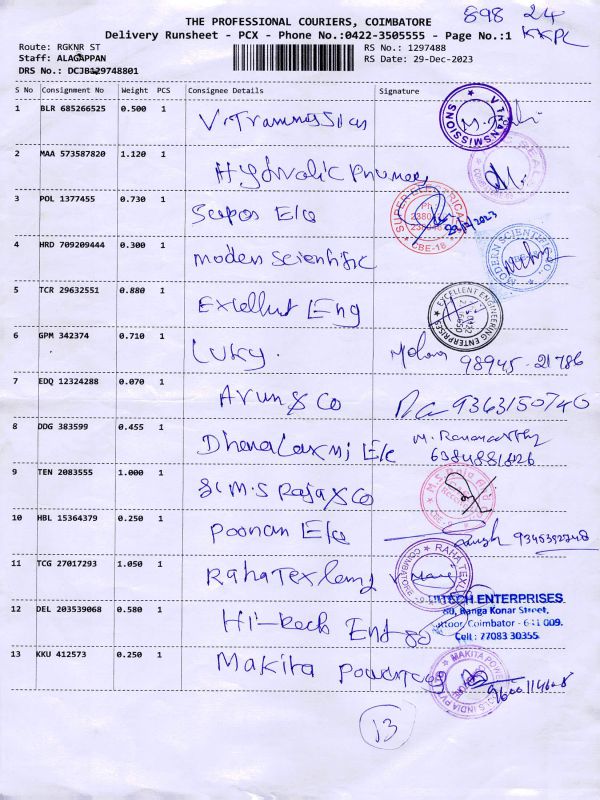 THE PROFESSIONAL COURIERS, COIMBATORE
898 24
Delivery Runsheet - PCX - Phone No.:0422-3505555 - Page No.:1
KKPL
Route: RGKNR ST
RS No.: 1297488
Staff: ALAGAPPAN
RS Date: 29-Dec-2023
DRS No.: DCJB129748801
S No Consignment No Weight PCS Consignee Details Signature
1 BLR 685266525 0.500 1 V. Transmission
V TRANSMISSIONS
2 MAA 573587820 1.120 1 Hydraulic
3 POL 1377455 0.730 1 Super Ele
SUPER ELECTRICALS
CBE-18
4 HRD 709209444 0.300 1 Moden Scientific
MODERN SCIENTIFIC CO.,
5 TCR 29632551 0.880 1 Excellent Eng
EXCELLENT ENGINEERING ENTERPRISES
6 GPM 342374 0.710 1 Luky.
98945-21786
7 EDQ 12324288 0.070 1 Arun & Co 9363150740
8 DDG 383599 0.455 1 Dhanalaxmi Ele
6384881826
9 TEN 2083555 1.000 1 M.S Raja & Co
10 HBL 15364379 0.250 1 Poonan Ele
11 TCG 27017293 1.050 1
RAHA TEX
COIMBATORE
12 DEL 203539068 0.580 1 Hi-Tech
HITECH ENTERPRISES
80, Ranga Konar Street,
Kattoor, Coimbatore - 641 009.
Cell : 77083 30355
13 KKU 412573 0.250 1 Makita
13